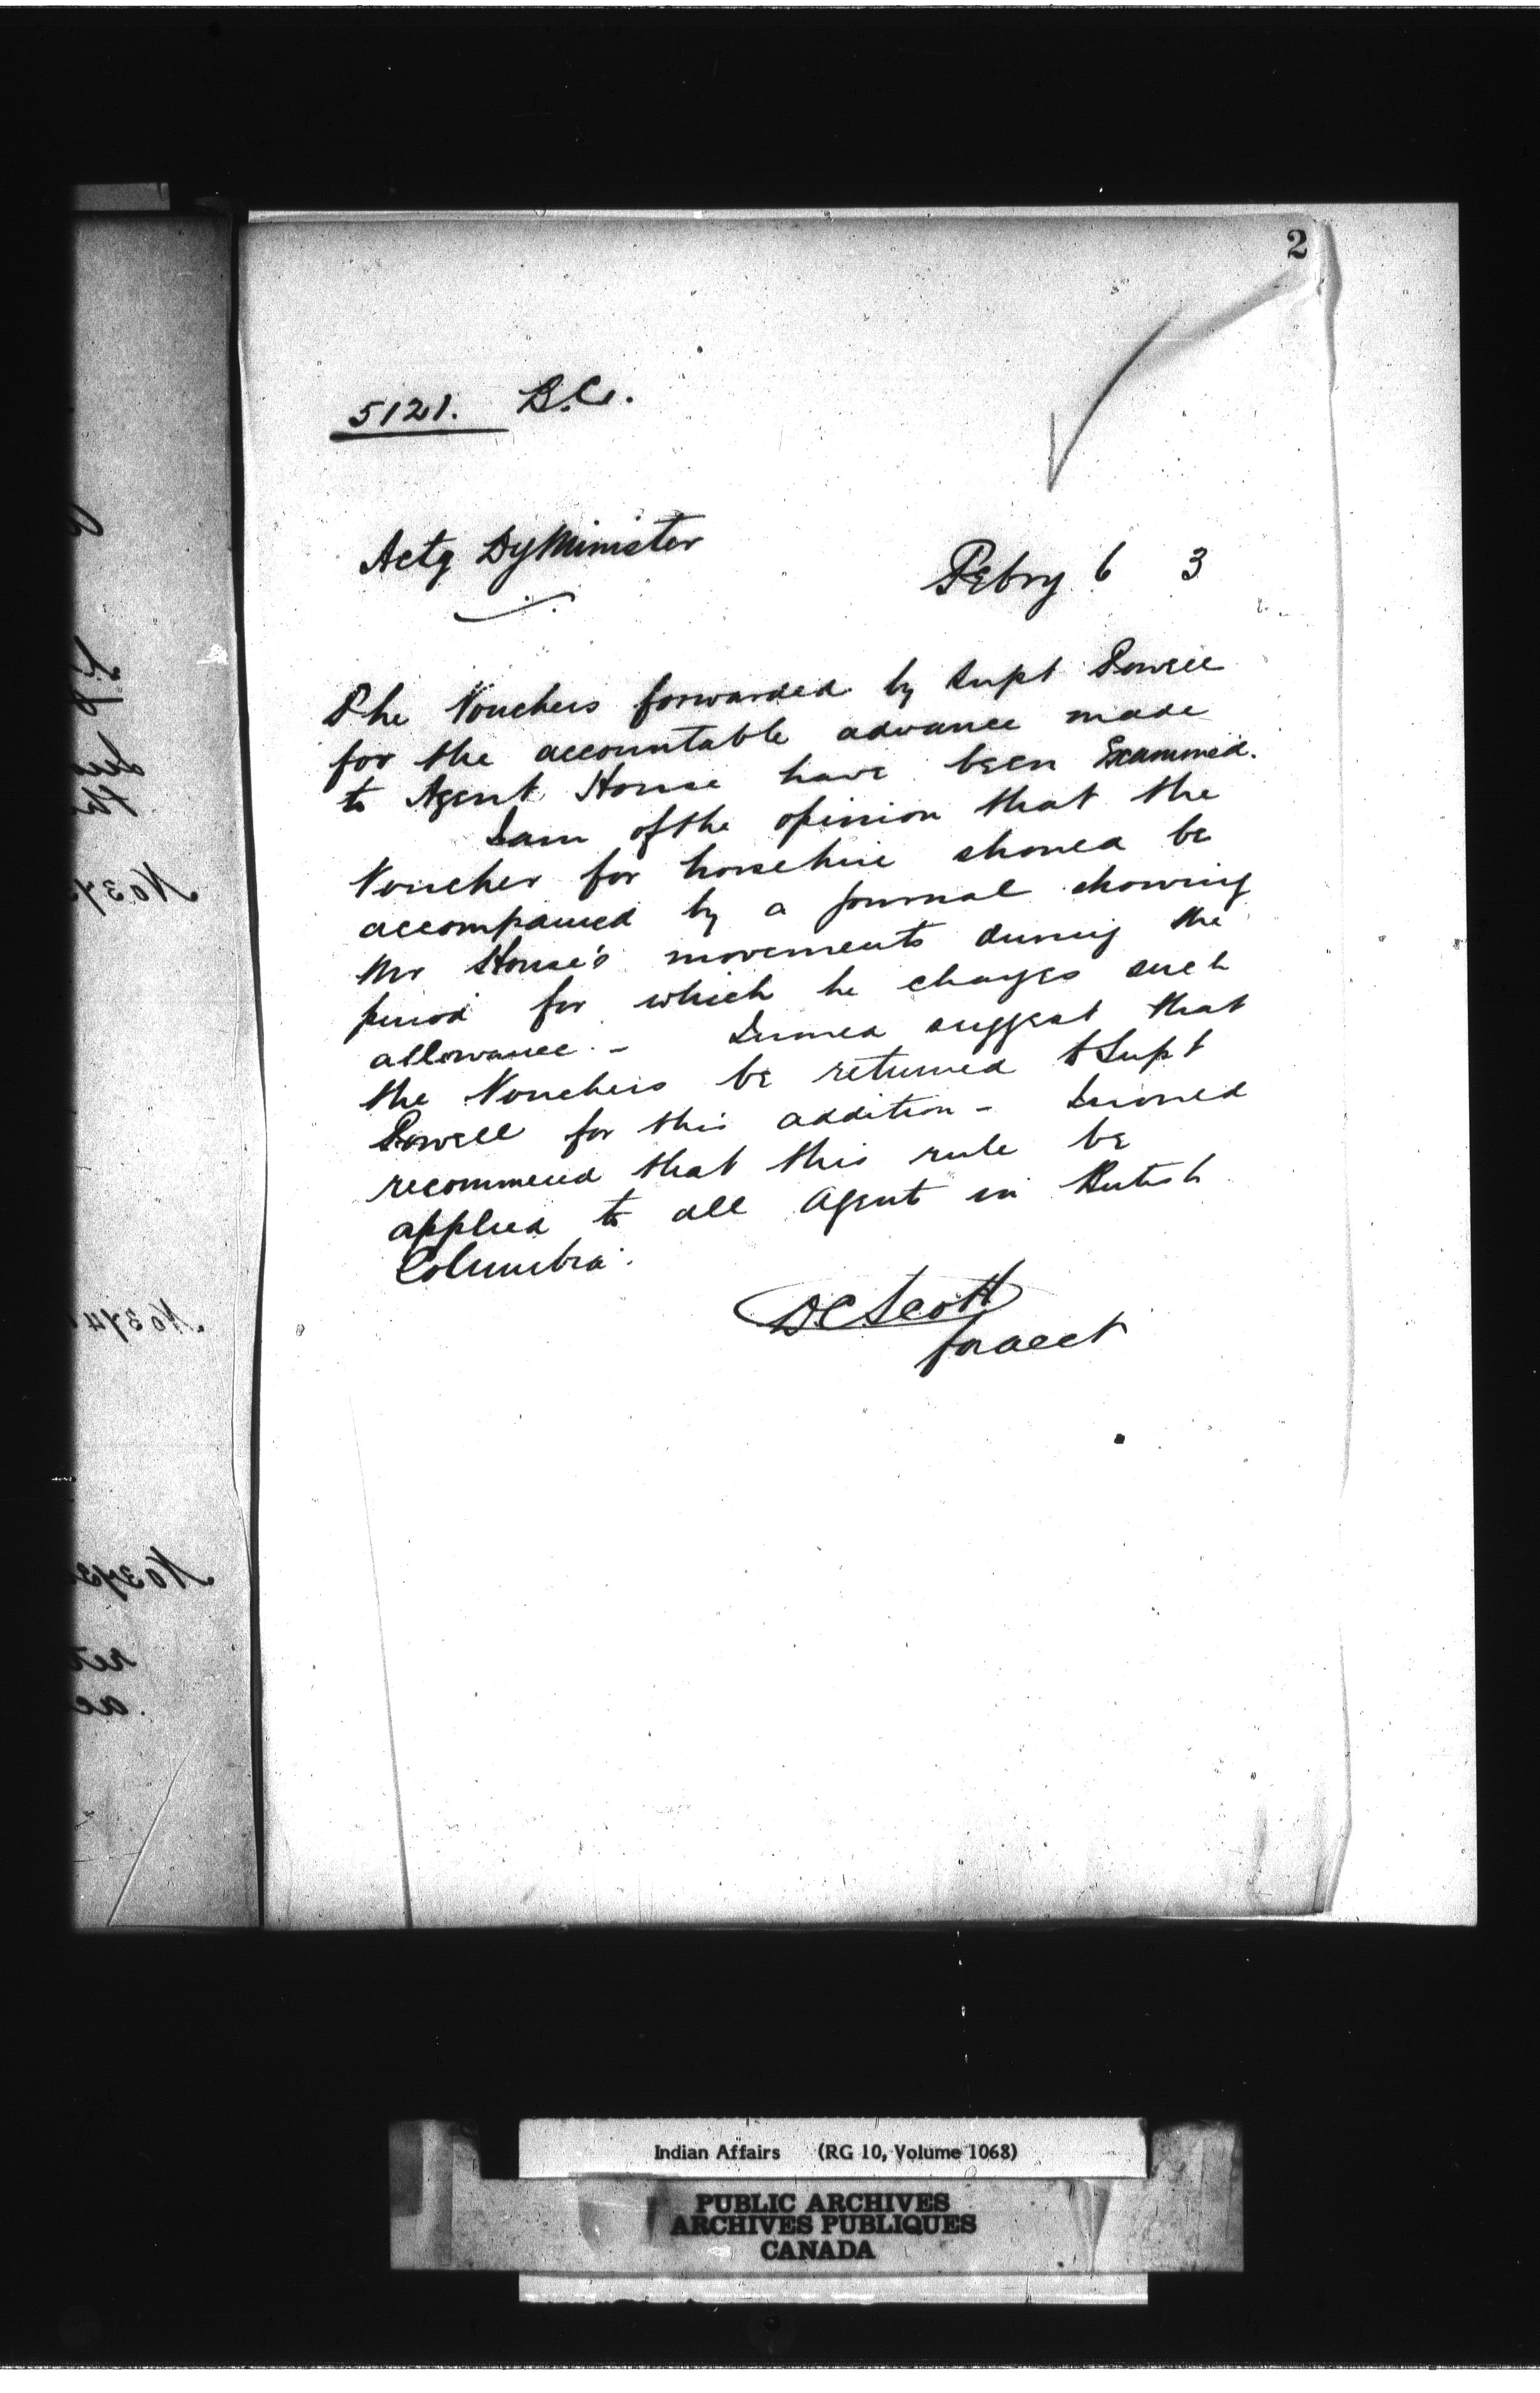 2
5121. B.C.
Actg DyMinister
Febry 6 3
The Vouchers forwarded by Supt Powell
for the accountable advance made
to Agent House have been Examined.
I am of the opinion that the
Voucher for horsehire should be
accompanied by a journal showing
Mr House's movements during the
period for which he charges such
allowance. - I would suggest that
the Vouchers be returned to Supt
Powell for this addition - I would
recommend that this rule be
applied to all Agents in British
Columbia.
D C Scott
for acct
No 37
No 374
No 373
Indian Affairs (RG 10, Volume 1068)
PUBLIC ARCHIVES
ARCHIVES PUBLIQUES
CANADA